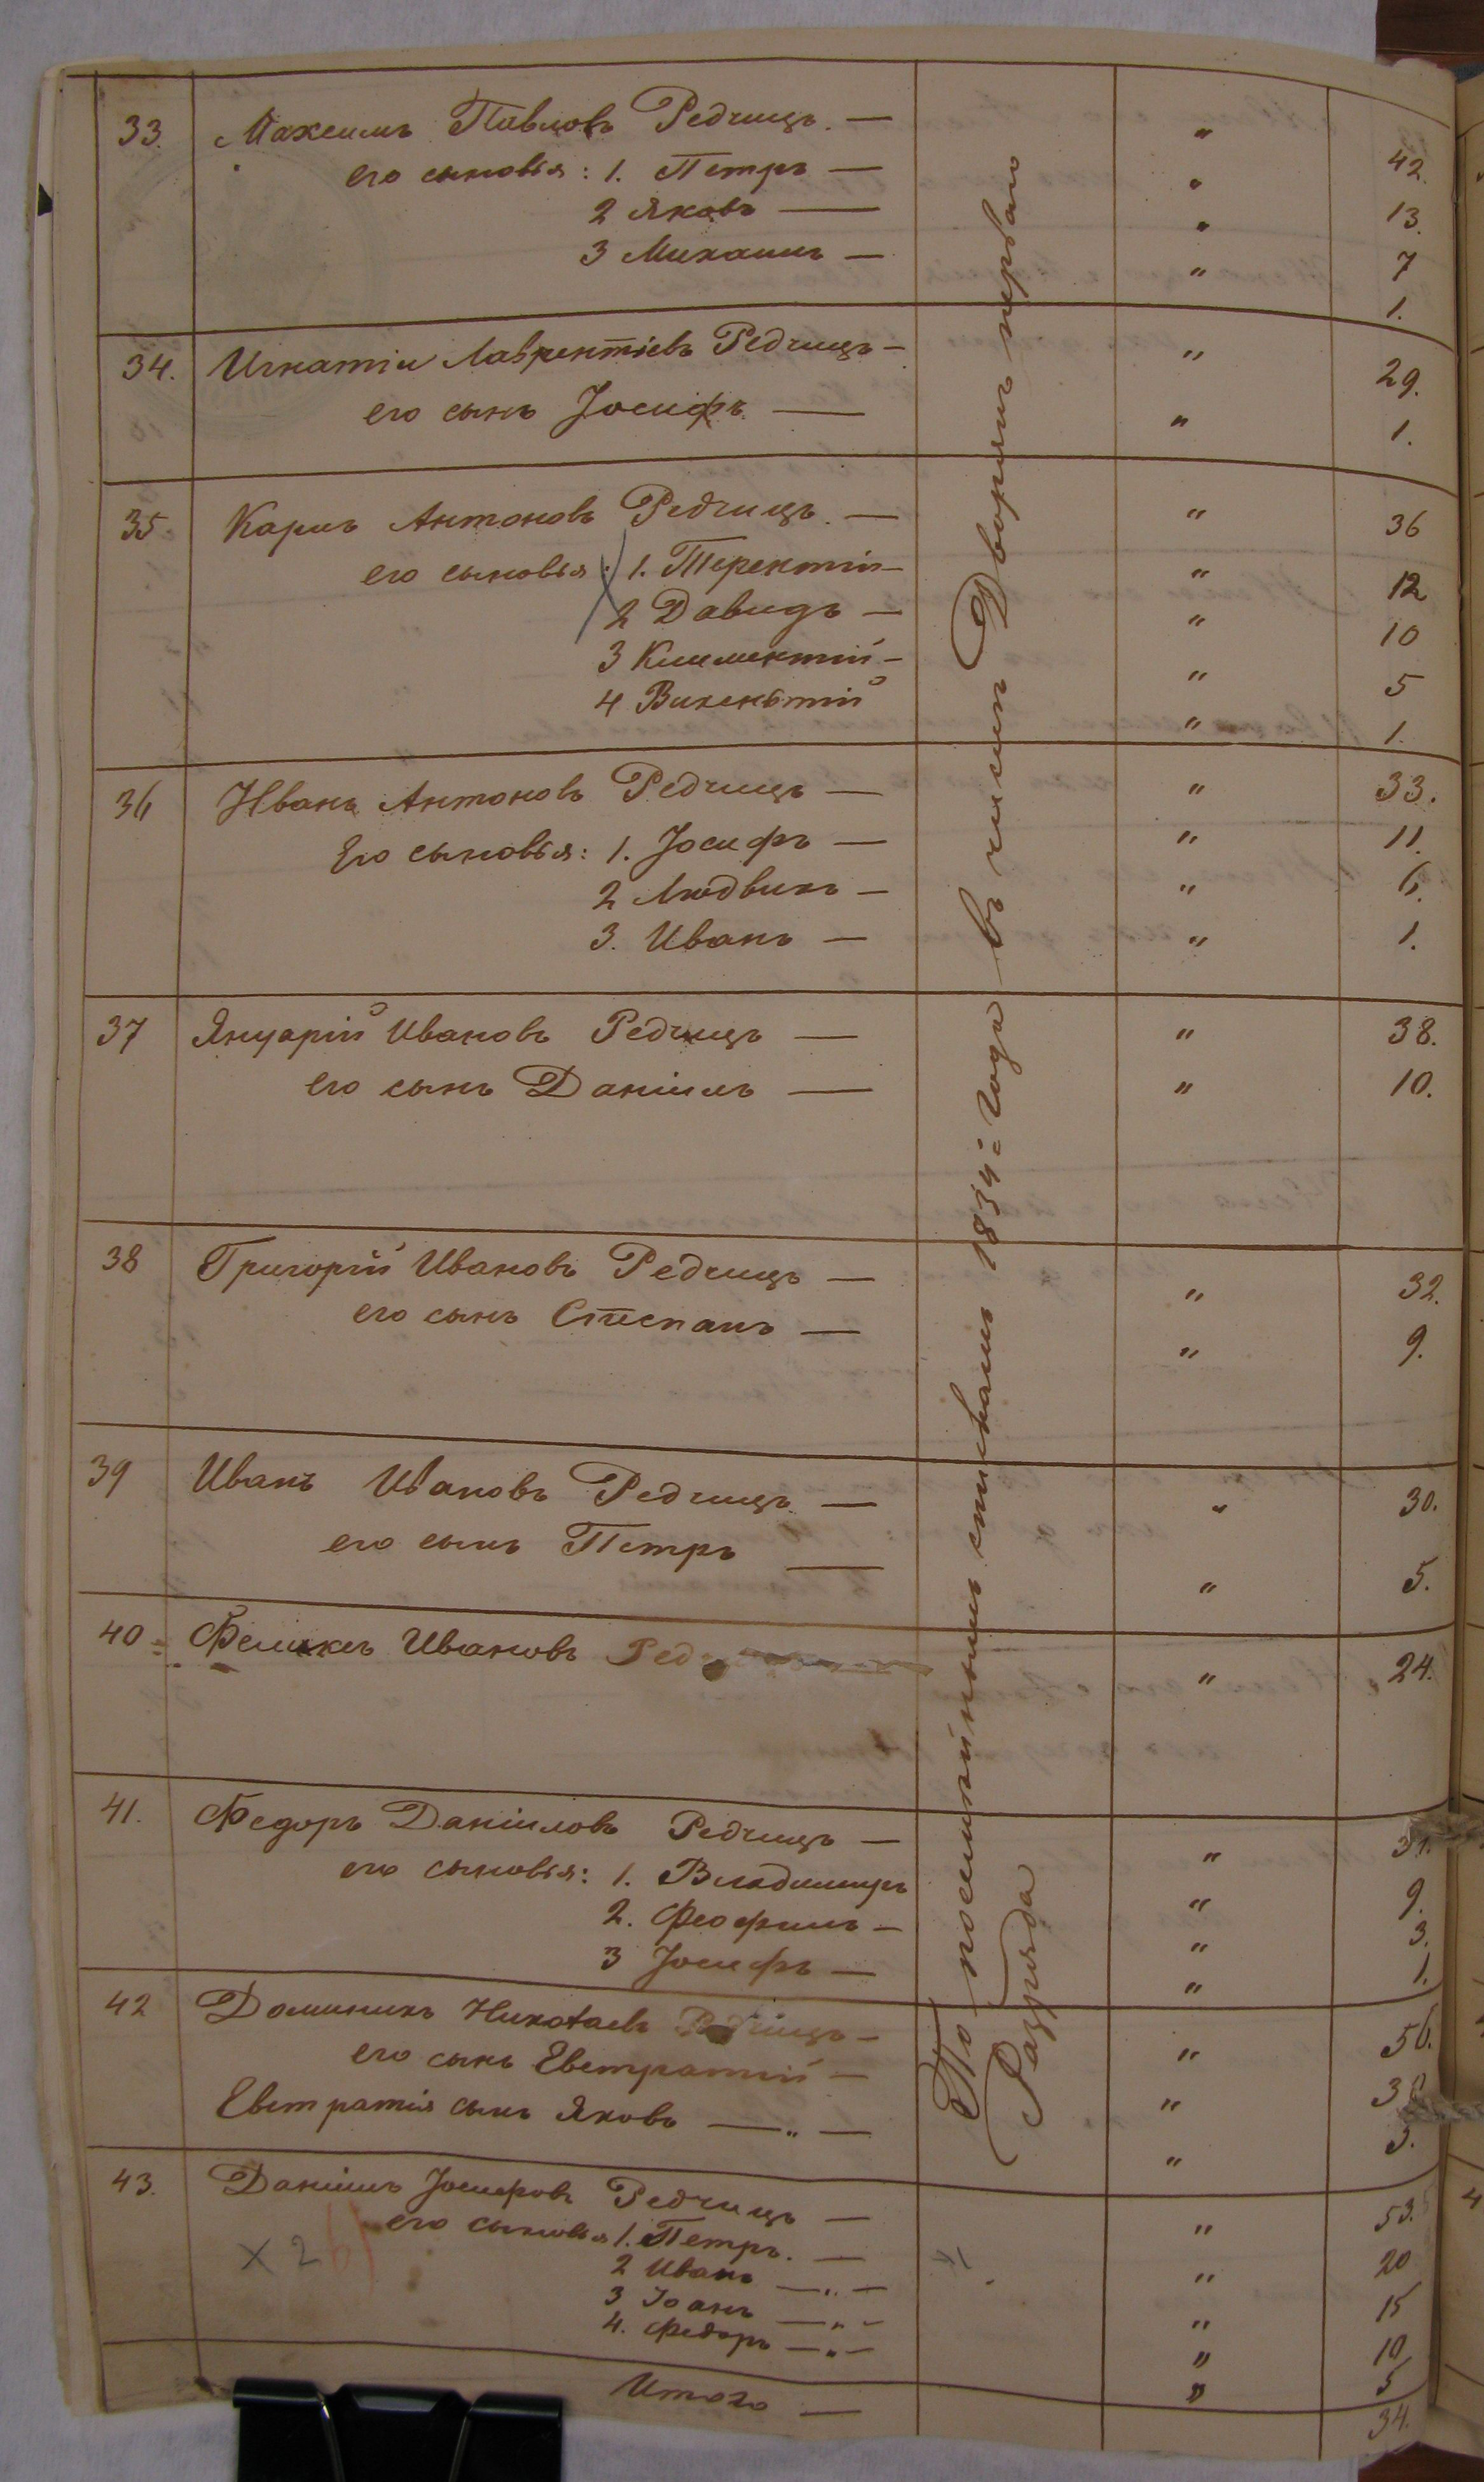 33. Максимъ Павловъ Редчицъ. — " 42.
его сыновья: 1. Петръ — " 13.
2 Яковъ — " 7
3 Михаилъ — " 1.
34. Игнатіи Лаврентіевъ Редчицъ — " 29.
его сынъ Іосифъ — " 1.
35 Карлъ Антоновъ Редчицъ. — " 36
его сыновья: 1. Терентіи — " 12
2 Давидъ — " 10
3 Климентій — " 5
4 Викентій " 1.
36 Иванъ Антоновъ Редчицъ — " 33.
Его сыновья: 1. Іосифъ — " 11.
2 Людвикъ — " 6.
3. Иванъ — " 1.
37 Януарій Ивановъ Редчицъ — " 38.
его сынъ Даніилъ — " 10.
38 Григорій Ивановъ Редчицъ — " 32.
его сынъ Степанъ — " 9.
39 Иванъ Ивановъ Редчицъ — " 30.
его сынъ Петръ — " 5.
40 Феликсъ Ивановъ Ред " 24.
41. Федоръ Даніиловъ Редчицъ — "
его сыновья: 1. Владимиръ " 9.
2. Феофилъ — " 3.
3 Іосифъ — " 1.
42 Доминикъ Николаевъ Редчицъ — " 56.
его сынъ Евстратий — "
Евстратія сынъ Яковъ — " — " 3.
43. Даніилъ Іосифовъ Редчицъ — " 53.
его сыновья 1. Петръ. — " 20
2 Иванъ — " — " 15
3 Іоанъ — " — " 10
4. Федоръ — " — " 5
х 2
Итого — 34.
По посемейнымъ спискамъ 1834 = года въ числѣ Дворянъ перваго
Разряда